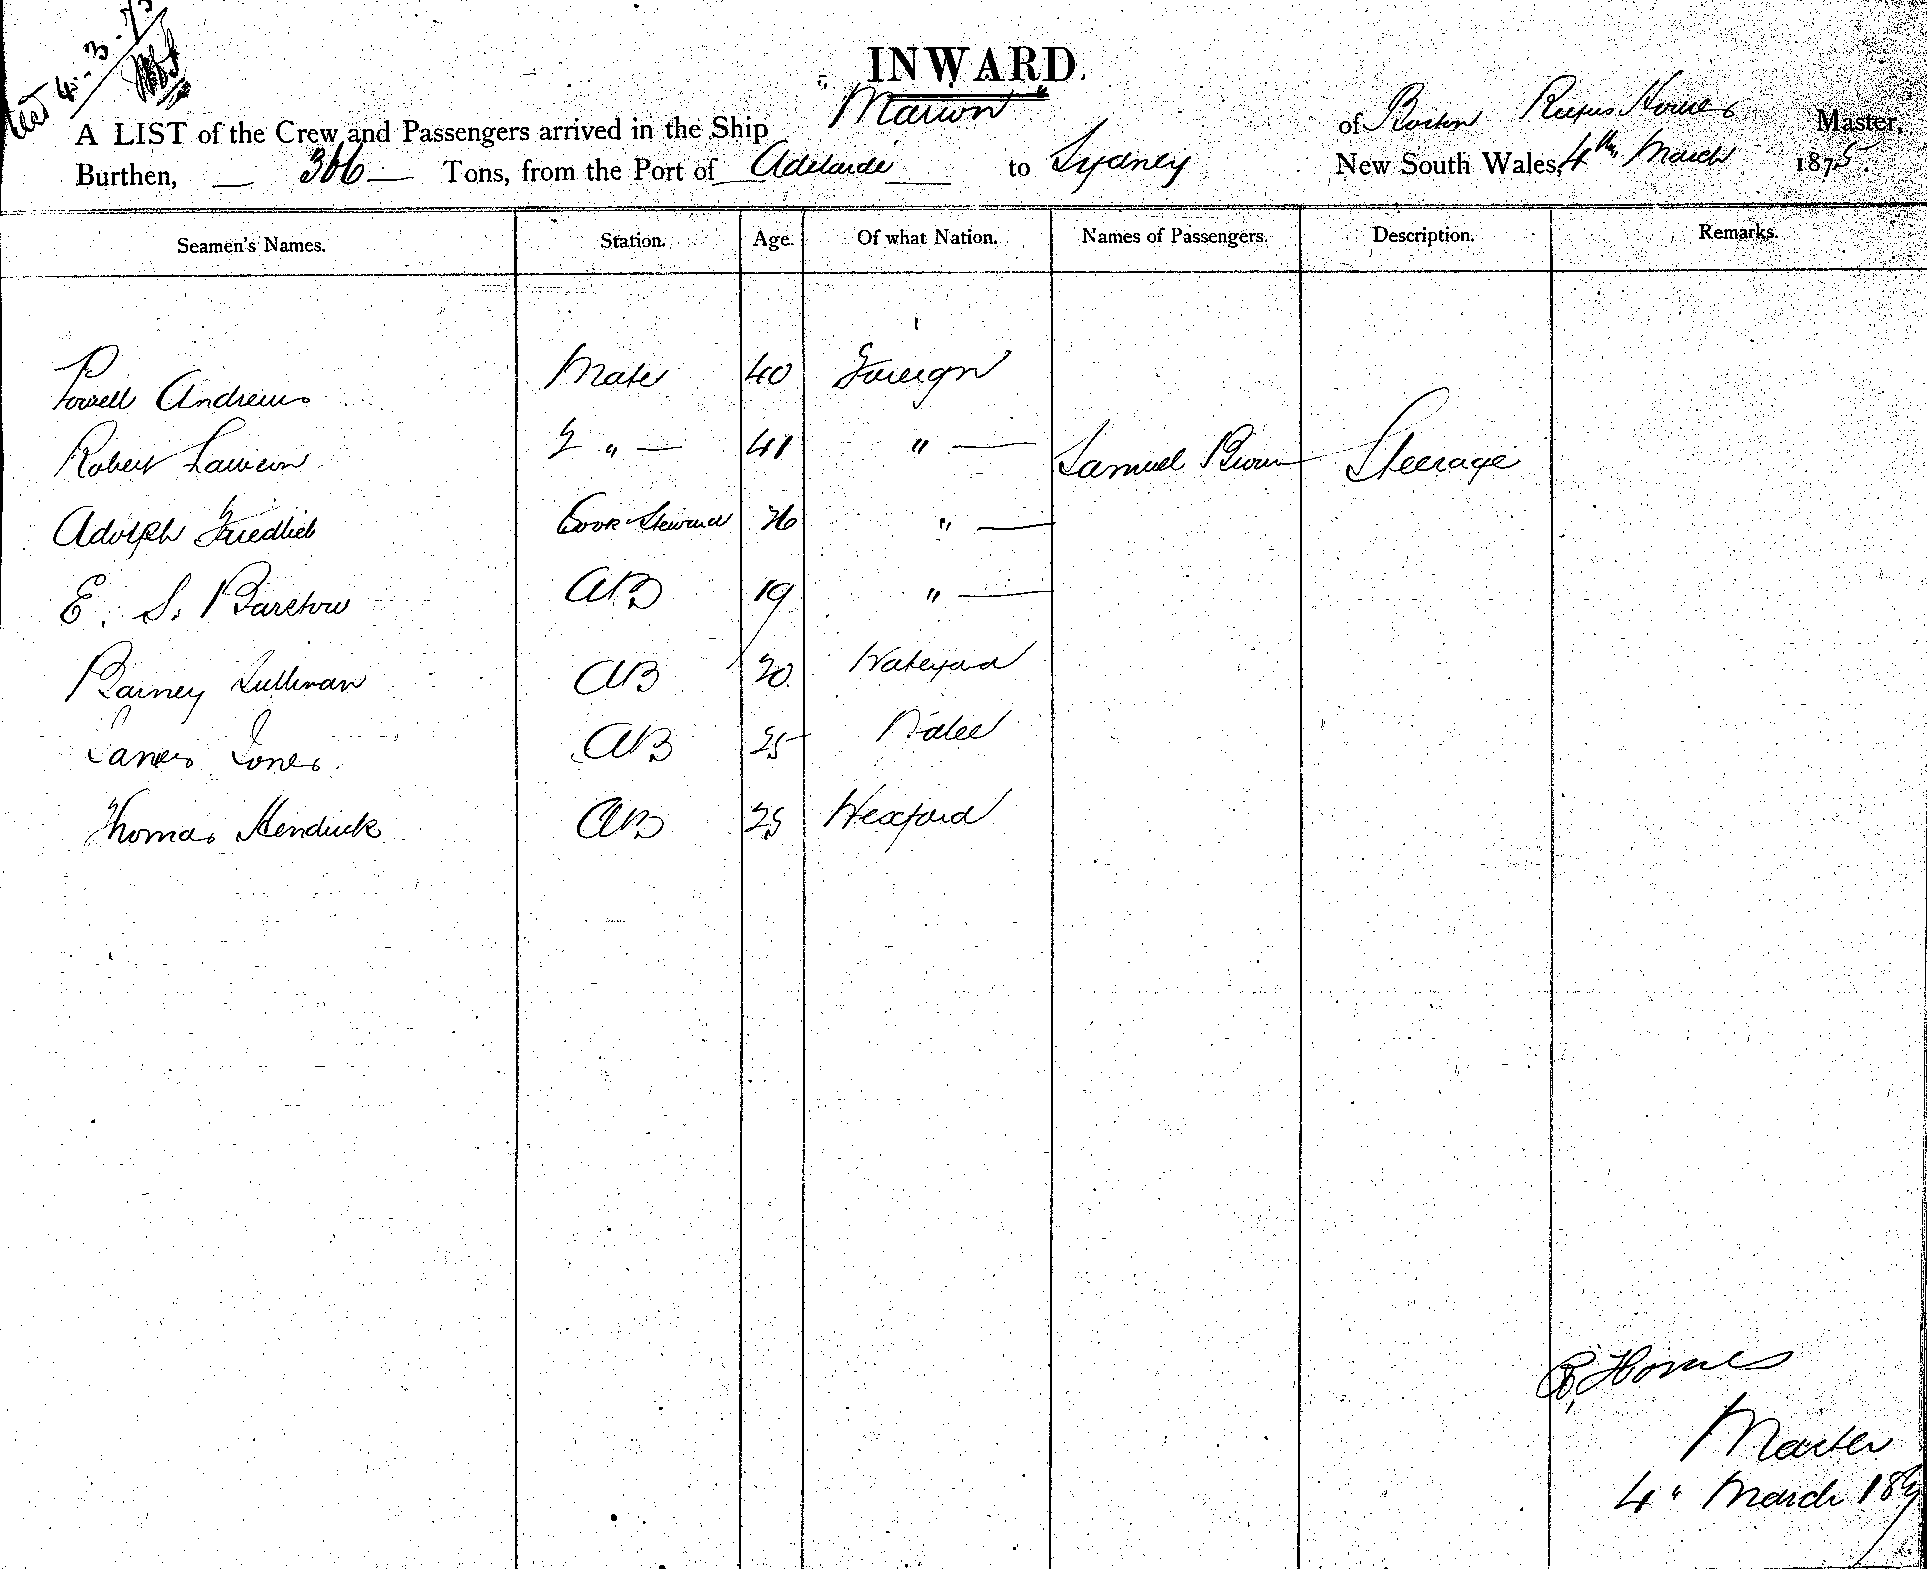 4-3-75
INWARD.
A LIST of the Crew and Passengers arrived in the Ship "Marion" of Boston Rufus Homes Master,
Burthen, — 366 — Tons, from the Port of Adelaide to Sydney New South Wales, 4th March 1875.
Seamen's Names. Station. Age. Of what Nation. Names of Passengers. Description. Remarks.
Powell Andrews Mate 40 Foreign
Robert Lawson 2 " — 41 " — Samuel Brown Steerage
Adolph Friedlieb Cook Steward 36 " —
E. S. Barstow AB 19 " —
Barney Sullivan AB 20 Waterford
James Jones AB 25 Wales
Thomas Hendrick AB 25 Wexford
R. Homes
Master
4" March 187